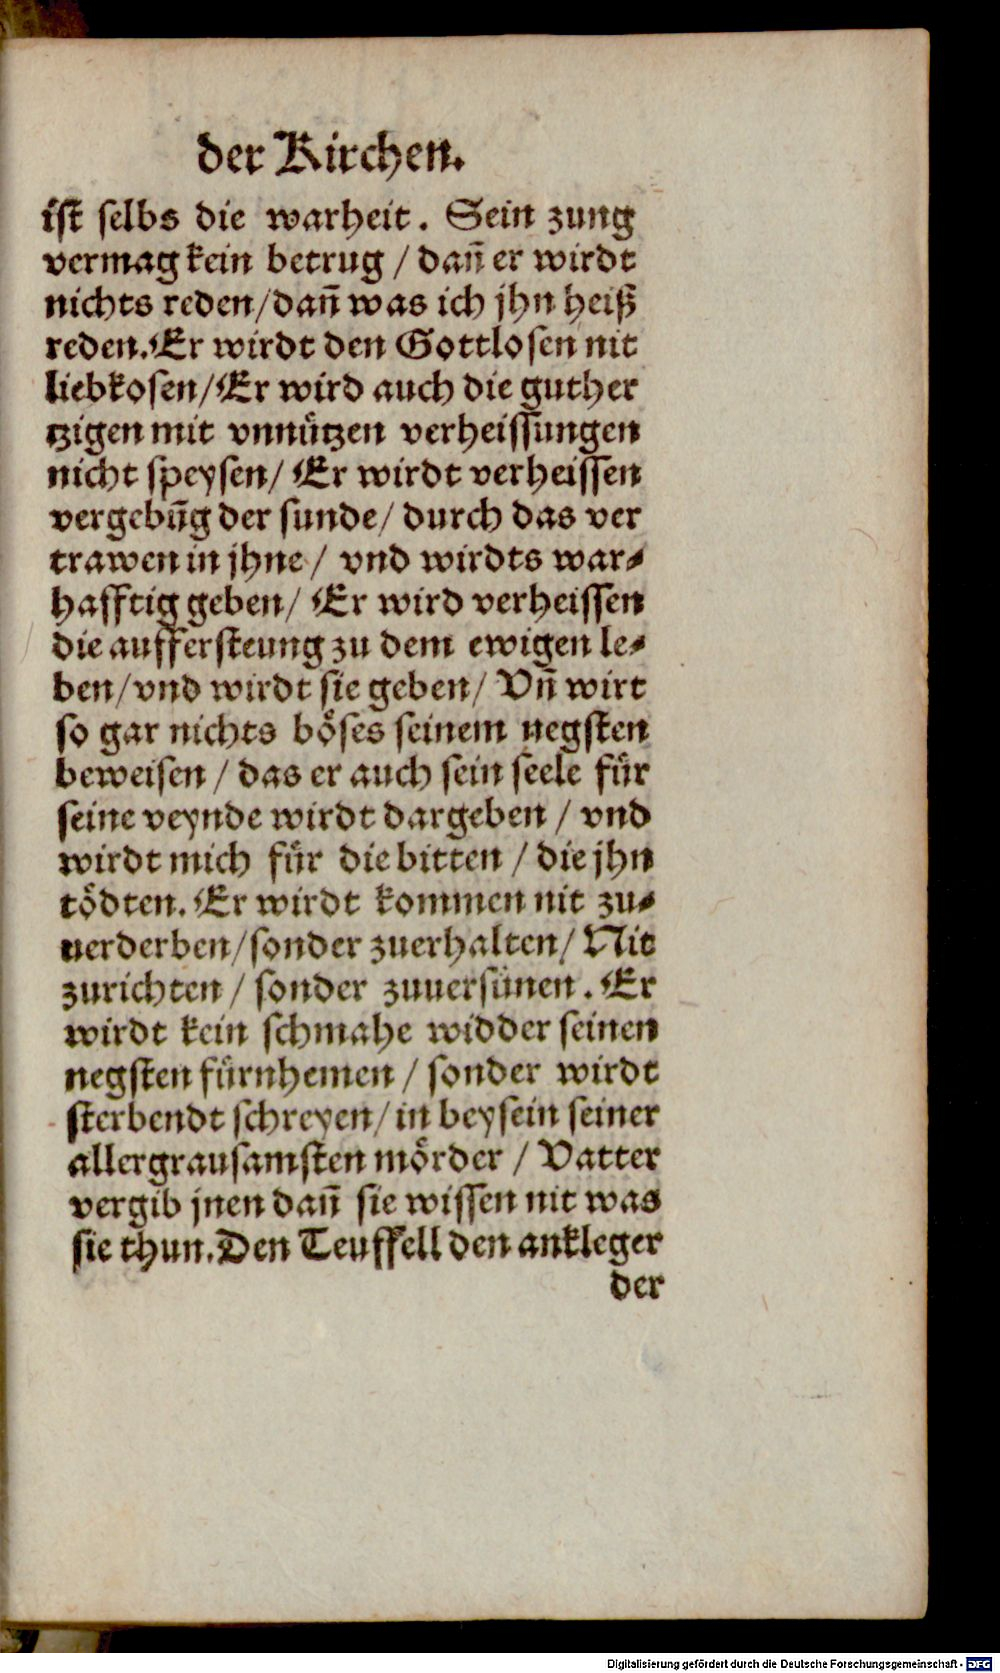 der Kirchen.
ist selbs die warheit. Sein zung
vermag kein betrug / dañ er wirdt
nichts reden / dañ was ich jhn heiß
reden. Er wirdt den Gottlosen nit
liebkosen / Er wird auch die guther
tzigen mit vnnützen verheissungen
nicht speysen / Er wirdt verheissen
vergebūg der sunde / durch das ver
trawen in jhne / vnd wirdts war⸗
hafftig geben / Er wird verheissen
die auffersteung zu dem ewigen le⸗
ben / vnd wirdt sie geben / Vñ wirt
so gar nichts böses seinem negsten
beweisen / das er auch sein seele für
seine veynde wirdt dargeben / vnd
wirdt mich für die bitten / die jhn
tödten. Er wirdt kommen nit zu⸗
uerderben / sonder zuerhalten / Nit
zurichten / sonder zuuersünen. Er
wirdt kein schmahe widder seinen
negsten fürnhemen / sonder wirdt
sterbendt schreyen / in beysein seiner
allergrausamsten mörder / Vatter
vergib jnen dañ sie wissen nit was
sie thun. Den Teuffell den ankleger
der
Digitalisierung gefördert durch die Deutsche Forschungsgemeinschaft - DFG